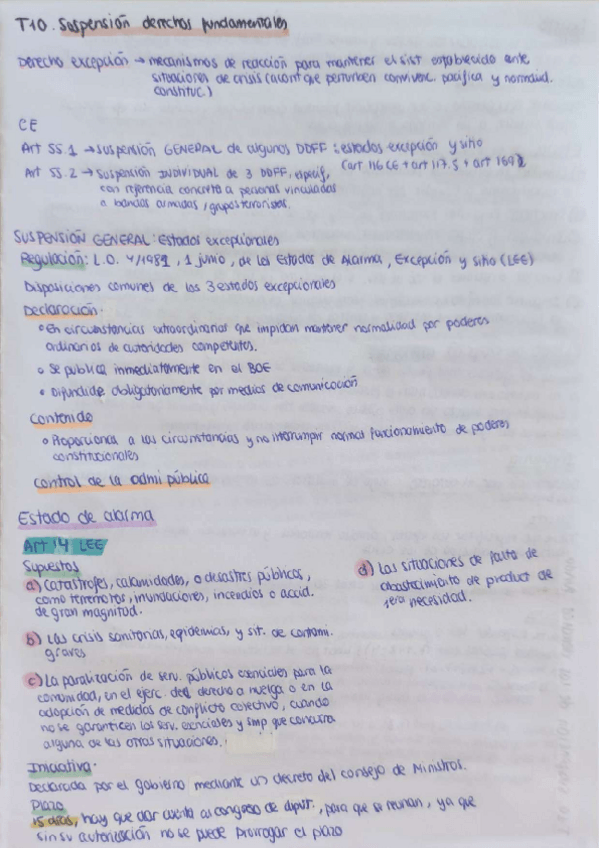 T10. Suspensión derechos fundamentales
Derecho excepción → mecanismos de reacción para mantener el sist establecido ante
situaciones de crisis (acont que perturben convivenc. pacífica y normalid.
constituc.)
CE
Art 55.1 → suspensión GENERAL de algunos DDFF : estados excepción y sitio
(art 116 CE + art 117.5 + art 169)
Art 55.2 → suspensión INDIVIDUAL de 3 DDFF, especif,
con referencia concreta a personas vinculadas
a bandas armadas, grupos terroristas.
SUSPENSIÓN GENERAL: Estados excepcionales
Regulación: L.O. 4/1981, 1 junio, de los Estados de Alarma, Excepción y sitio (LEE)
Disposiciones comunes de los 3 estados excepcionales
Declaración.
• En circunstancias extraordinarias que impidan mantener normalidad por poderes
ordinarios de autoridades competentes.
• Se publica inmediatamente en el BOE
• Difundida obligatoriamente por medios de comunicación
Contenido
• Proporciona a las circunstancias y no interrumpir normal funcionamiento de poderes
constitucionales
Control de la admi pública
Estado de alarma
Art 14 LEE
Supuestos
a) Catástrofes, calamidades, o desastres públicos,
como terremotos, inundaciones, incendios o accid.
de gran magnitud.
b) Las crisis sanitarias, epidemias, y sit. de contami.
graves
c) La paralización de serv. públicos esenciales para la
comunidad, en el ejerc. del derecho a huelga o en la
adopción de medidas de conflicto colectivo, cuando
no se garanticen los serv. esenciales y smp que concurra
alguna de las otras situaciones.
d) Las situaciones de falta de
abastecimiento de product de
1era necesidad.
Iniciativa.
Declarada por el gobierno mediante un decreto del consejo de Ministros.
Plazo
15 días, hay que dar cuenta al congreso de diput., para que se reunan, ya que
sin su autorización no se puede prorrogar el plazo